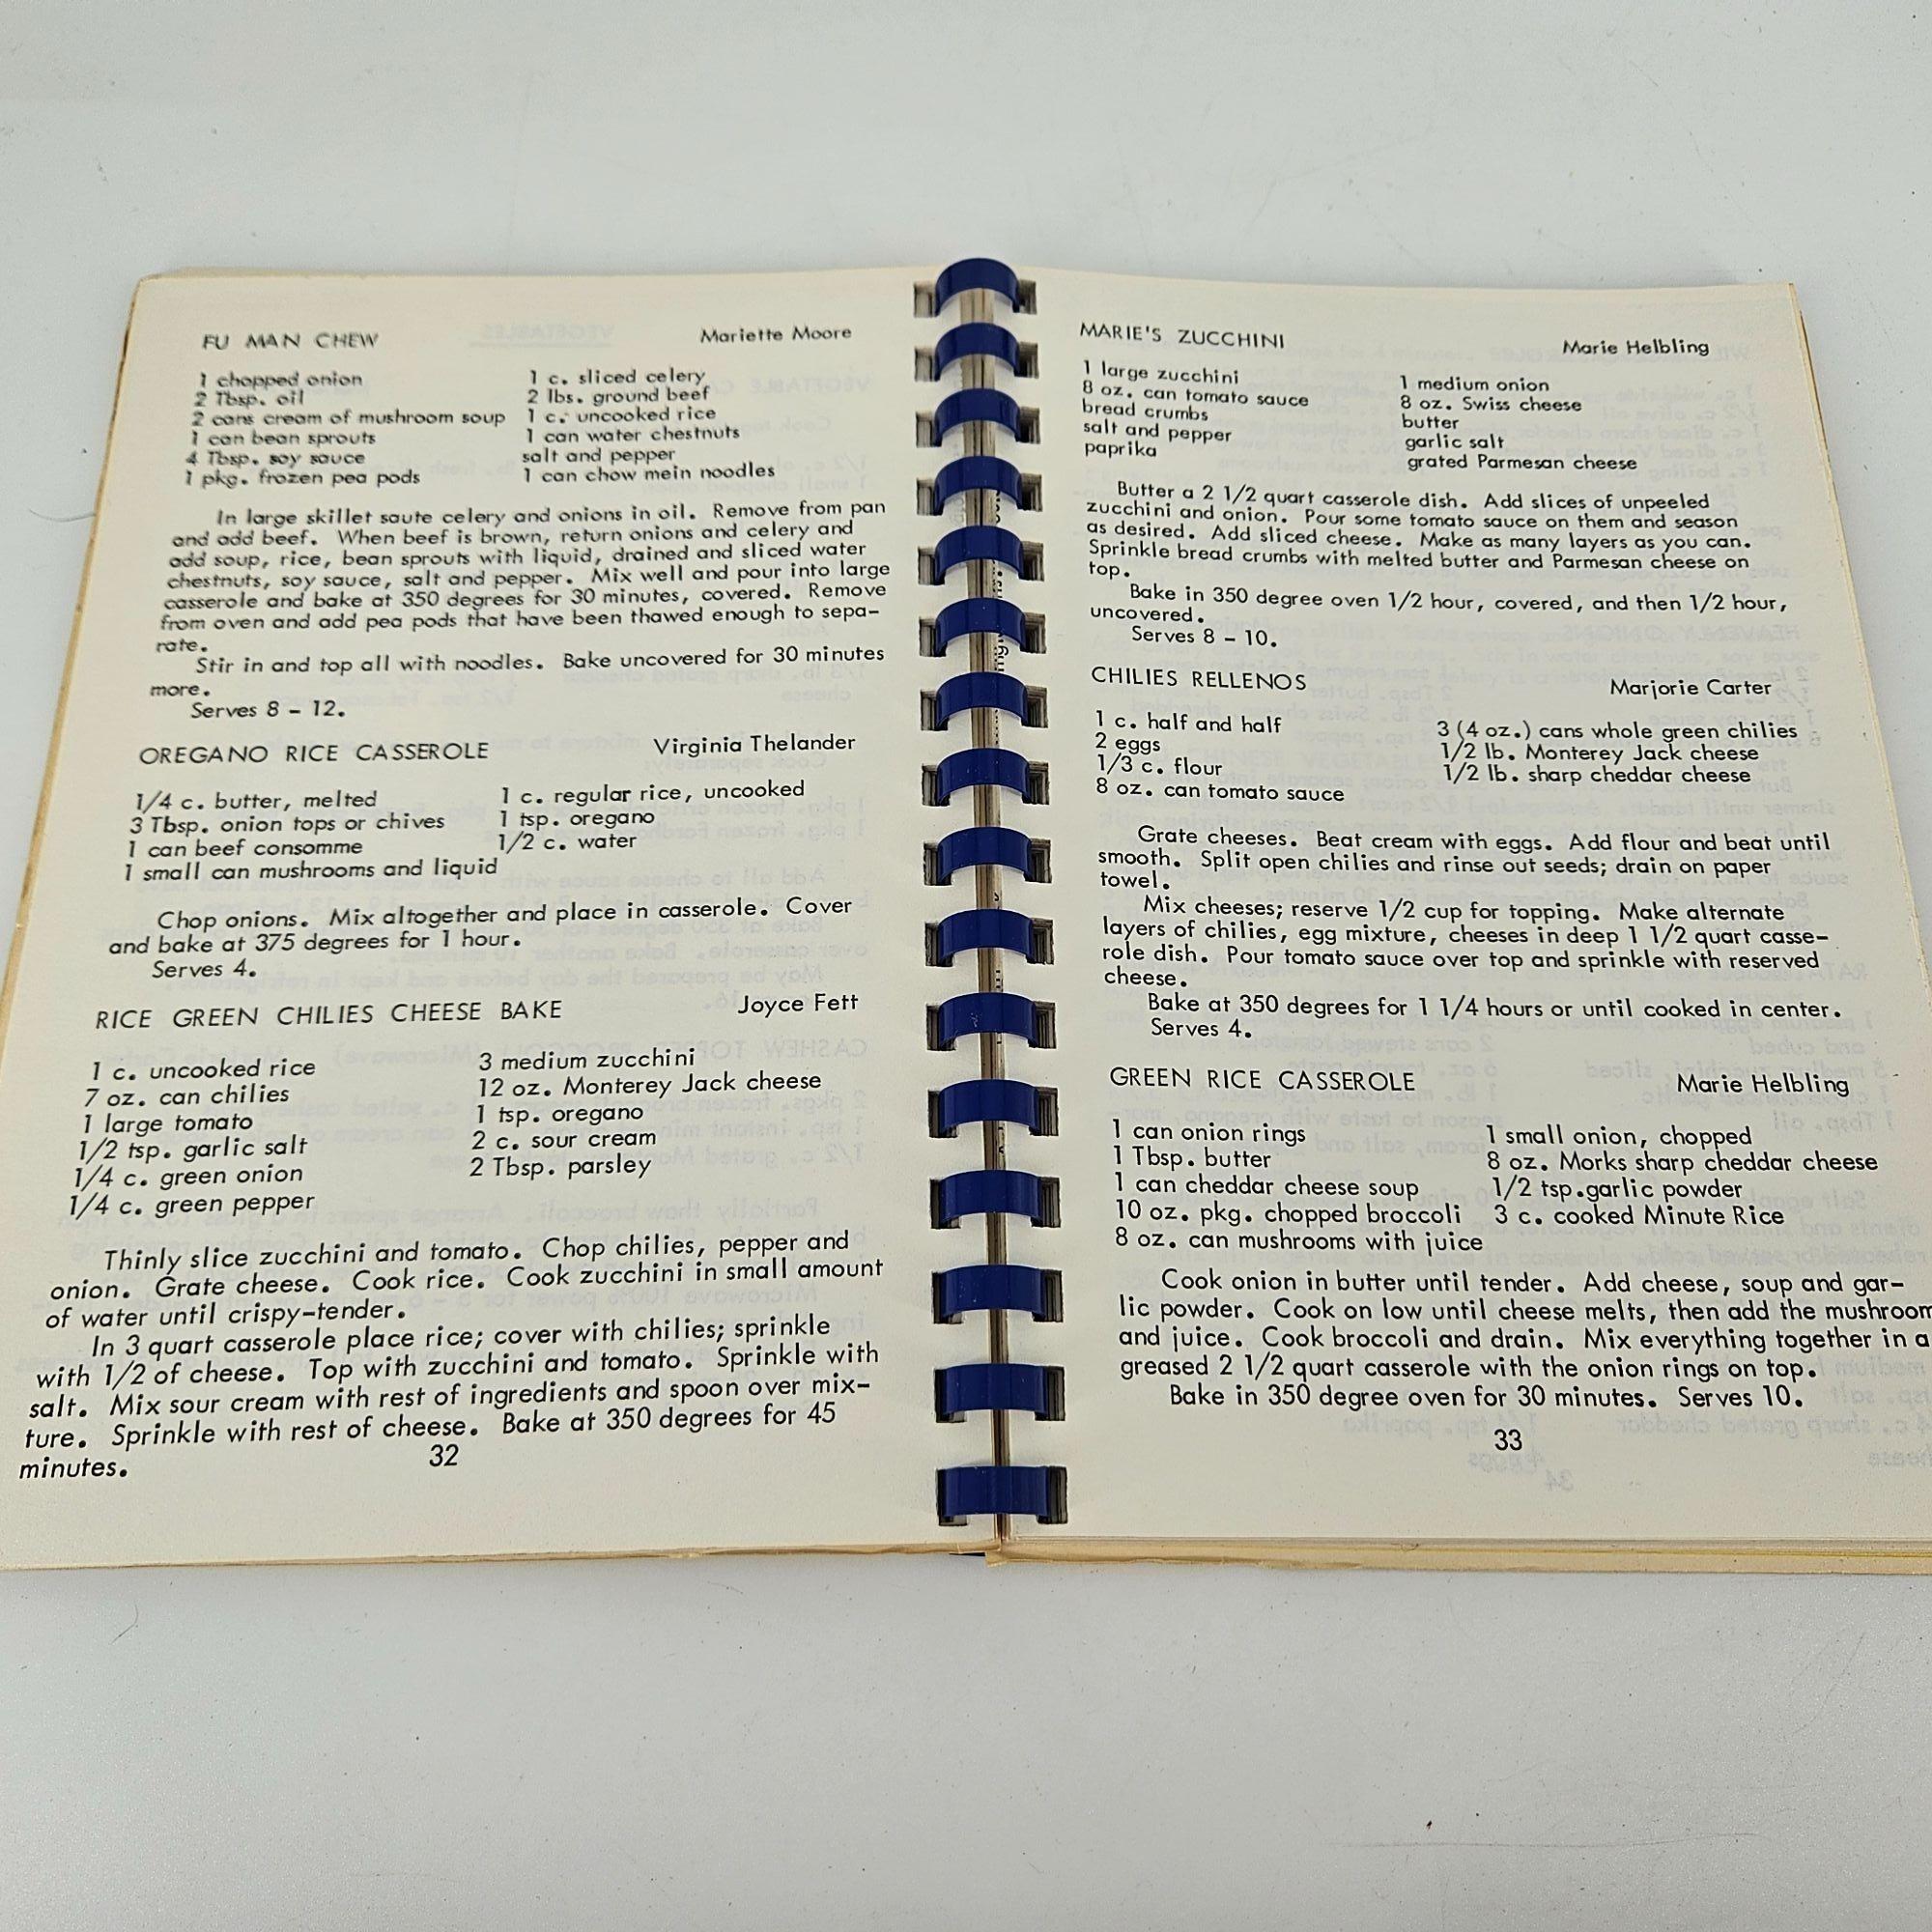 FU MAN CHEW Mariette Moore
1 chopped onion 1 c. sliced celery
2 Tbsp. oil 2 lbs. ground beef
2 cans cream of mushroom soup 1 c. uncooked rice
1 can bean sprouts 1 can water chestnuts
4 Tbsp. soy sauce salt and pepper
1 pkg. frozen pea pods 1 can chow mein noodles
In large skillet saute celery and onions in oil. Remove from pan
and add beef. When beef is brown, return onions and celery and
add soup, rice, bean sprouts with liquid, drained and sliced water
chestnuts, soy sauce, salt and pepper. Mix well and pour into large
casserole and bake at 350 degrees for 30 minutes, covered. Remove
from oven and add pea pods that have been thawed enough to sepa-
rate.
Stir in and top all with noodles. Bake uncovered for 30 minutes
more.
Serves 8 - 12.
OREGANO RICE CASSEROLE Virginia Thelander
1/4 c. butter, melted 1 c. regular rice, uncooked
3 Tbsp. onion tops or chives 1 tsp. oregano
1 can beef consomme 1/2 c. water
1 small can mushrooms and liquid
Chop onions. Mix altogether and place in casserole. Cover
and bake at 375 degrees for 1 hour.
Serves 4.
RICE GREEN CHILIES CHEESE BAKE Joyce Fett
1 c. uncooked rice 3 medium zucchini
7 oz. can chilies 12 oz. Monterey Jack cheese
1 large tomato 1 tsp. oregano
1/2 tsp. garlic salt 2 c. sour cream
1/4 c. green onion 2 Tbsp. parsley
1/4 c. green pepper
Thinly slice zucchini and tomato. Chop chilies, pepper and
onion. Grate cheese. Cook rice. Cook zucchini in small amount
of water until crispy-tender.
In 3 quart casserole place rice; cover with chilies; sprinkle
with 1/2 of cheese. Top with zucchini and tomato. Sprinkle with
salt. Mix sour cream with rest of ingredients and spoon over mix-
ture. Sprinkle with rest of cheese. Bake at 350 degrees for 45
minutes.
32
MARIE'S ZUCCHINI Marie Helbling
1 large zucchini 1 medium onion
8 oz. can tomato sauce 8 oz. Swiss cheese
bread crumbs butter
salt and pepper garlic salt
paprika grated Parmesan cheese
Butter a 2 1/2 quart casserole dish. Add slices of unpeeled
zucchini and onion. Pour some tomato sauce on them and season
as desired. Add sliced cheese. Make as many layers as you can.
Sprinkle bread crumbs with melted butter and Parmesan cheese on
top.
Bake in 350 degree oven 1/2 hour, covered, and then 1/2 hour,
uncovered.
Serves 8 - 10.
CHILIES RELLENOS Marjorie Carter
1 c. half and half 3 (4 oz.) cans whole green chilies
2 eggs 1/2 lb. Monterey Jack cheese
1/3 c. flour 1/2 lb. sharp cheddar cheese
8 oz. can tomato sauce
Grate cheeses. Beat cream with eggs. Add flour and beat until
smooth. Split open chilies and rinse out seeds; drain on paper
towel.
Mix cheeses; reserve 1/2 cup for topping. Make alternate
layers of chilies, egg mixture, cheeses in deep 1 1/2 quart casse-
role dish. Pour tomato sauce over top and sprinkle with reserved
cheese.
Bake at 350 degrees for 1 1/4 hours or until cooked in center.
Serves 4.
GREEN RICE CASSEROLE Marie Helbling
1 can onion rings 1 small onion, chopped
1 Tbsp. butter 8 oz. Morks sharp cheddar cheese
1 can cheddar cheese soup 1/2 tsp.garlic powder
10 oz. pkg. chopped broccoli 3 c. cooked Minute Rice
8 oz. can mushrooms with juice
Cook onion in butter until tender. Add cheese, soup and gar-
lic powder. Cook on low until cheese melts, then add the mushroom
and juice. Cook broccoli and drain. Mix everything together in a
greased 2 1/2 quart casserole with the onion rings on top.
Bake in 350 degree oven for 30 minutes. Serves 10.
33